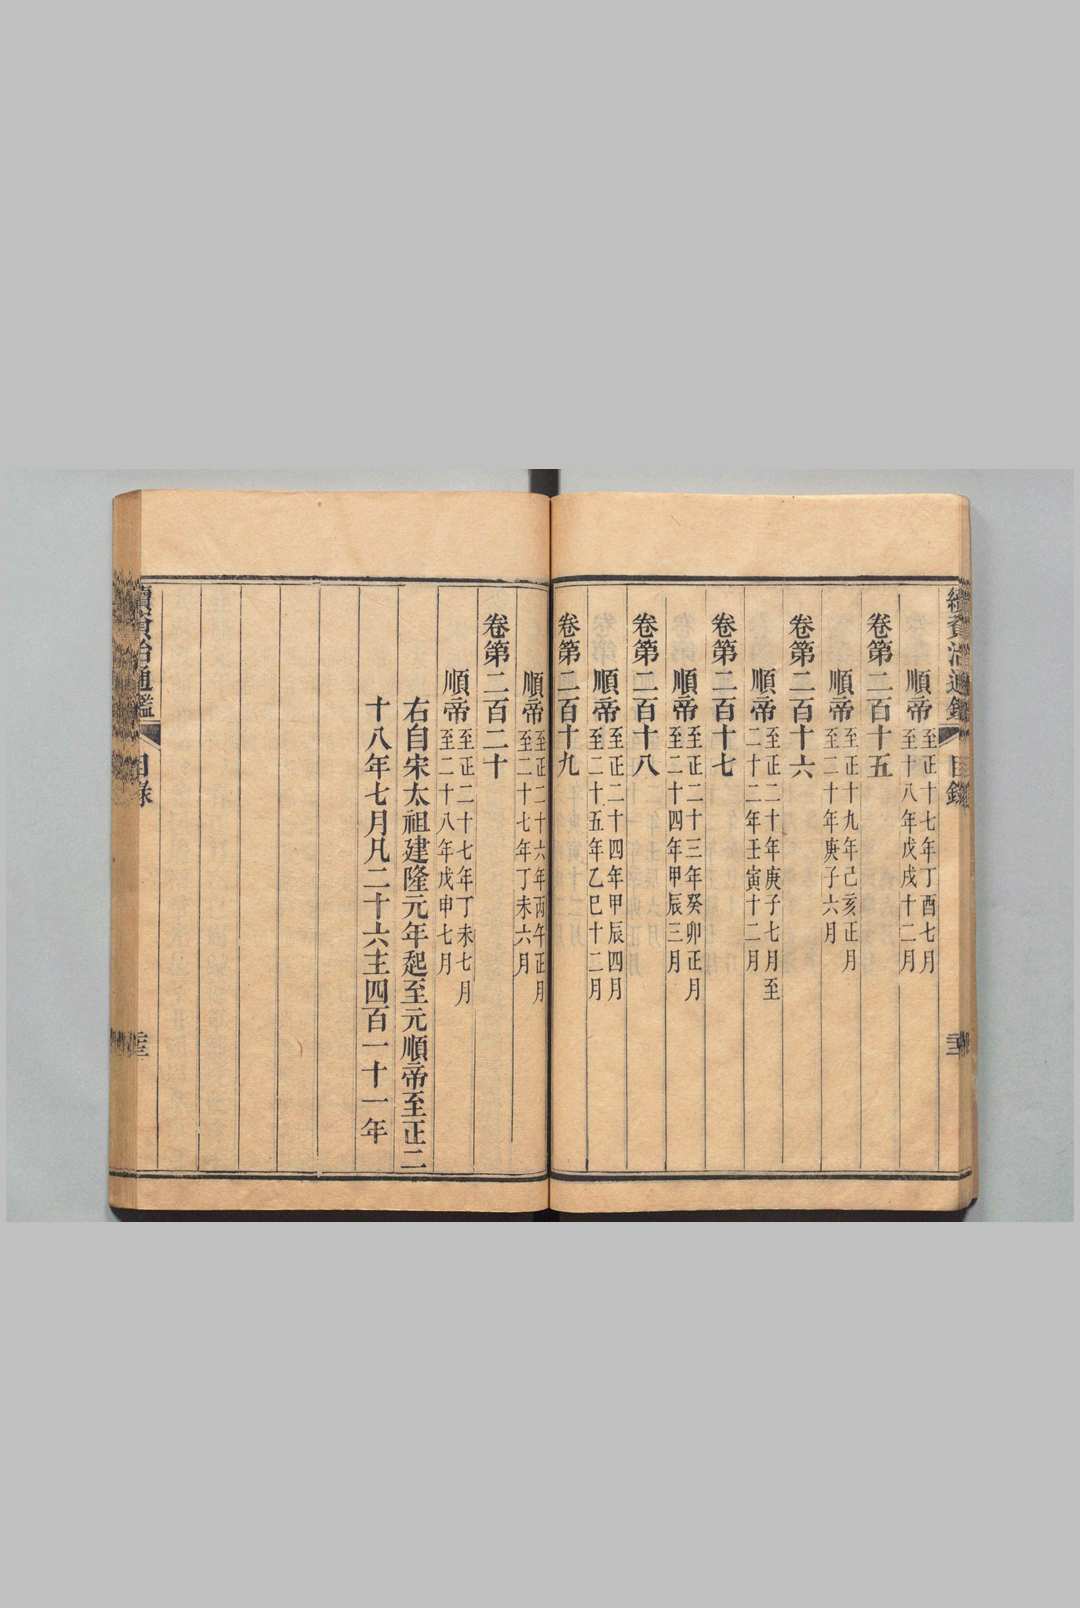 續資治通鑑 目錄 三十三
順帝 至正十七年丁酉七月
至十八年戊戌十二月
卷第二百十五
順帝 至正十九年己亥正月
至二十年庚子六月
卷第二百十六
順帝 至正二十年庚子七月至
二十二年壬寅十二月
卷第二百十七
順帝 至正二十三年癸卯正月
至二十四年甲辰三月
卷第二百十八
順帝 至正二十四年甲辰四月
至二十五年乙巳十二月
卷第二百十九
順帝 至正二十六年丙午正月
至二十七年丁未六月
卷第二百二十
順帝 至正二十七年丁未七月
至二十八年戊申七月
右自宋太祖建隆元年起至元順帝至正二
十八年七月凡二十六主四百一十一年
續資治通鑑 目錄